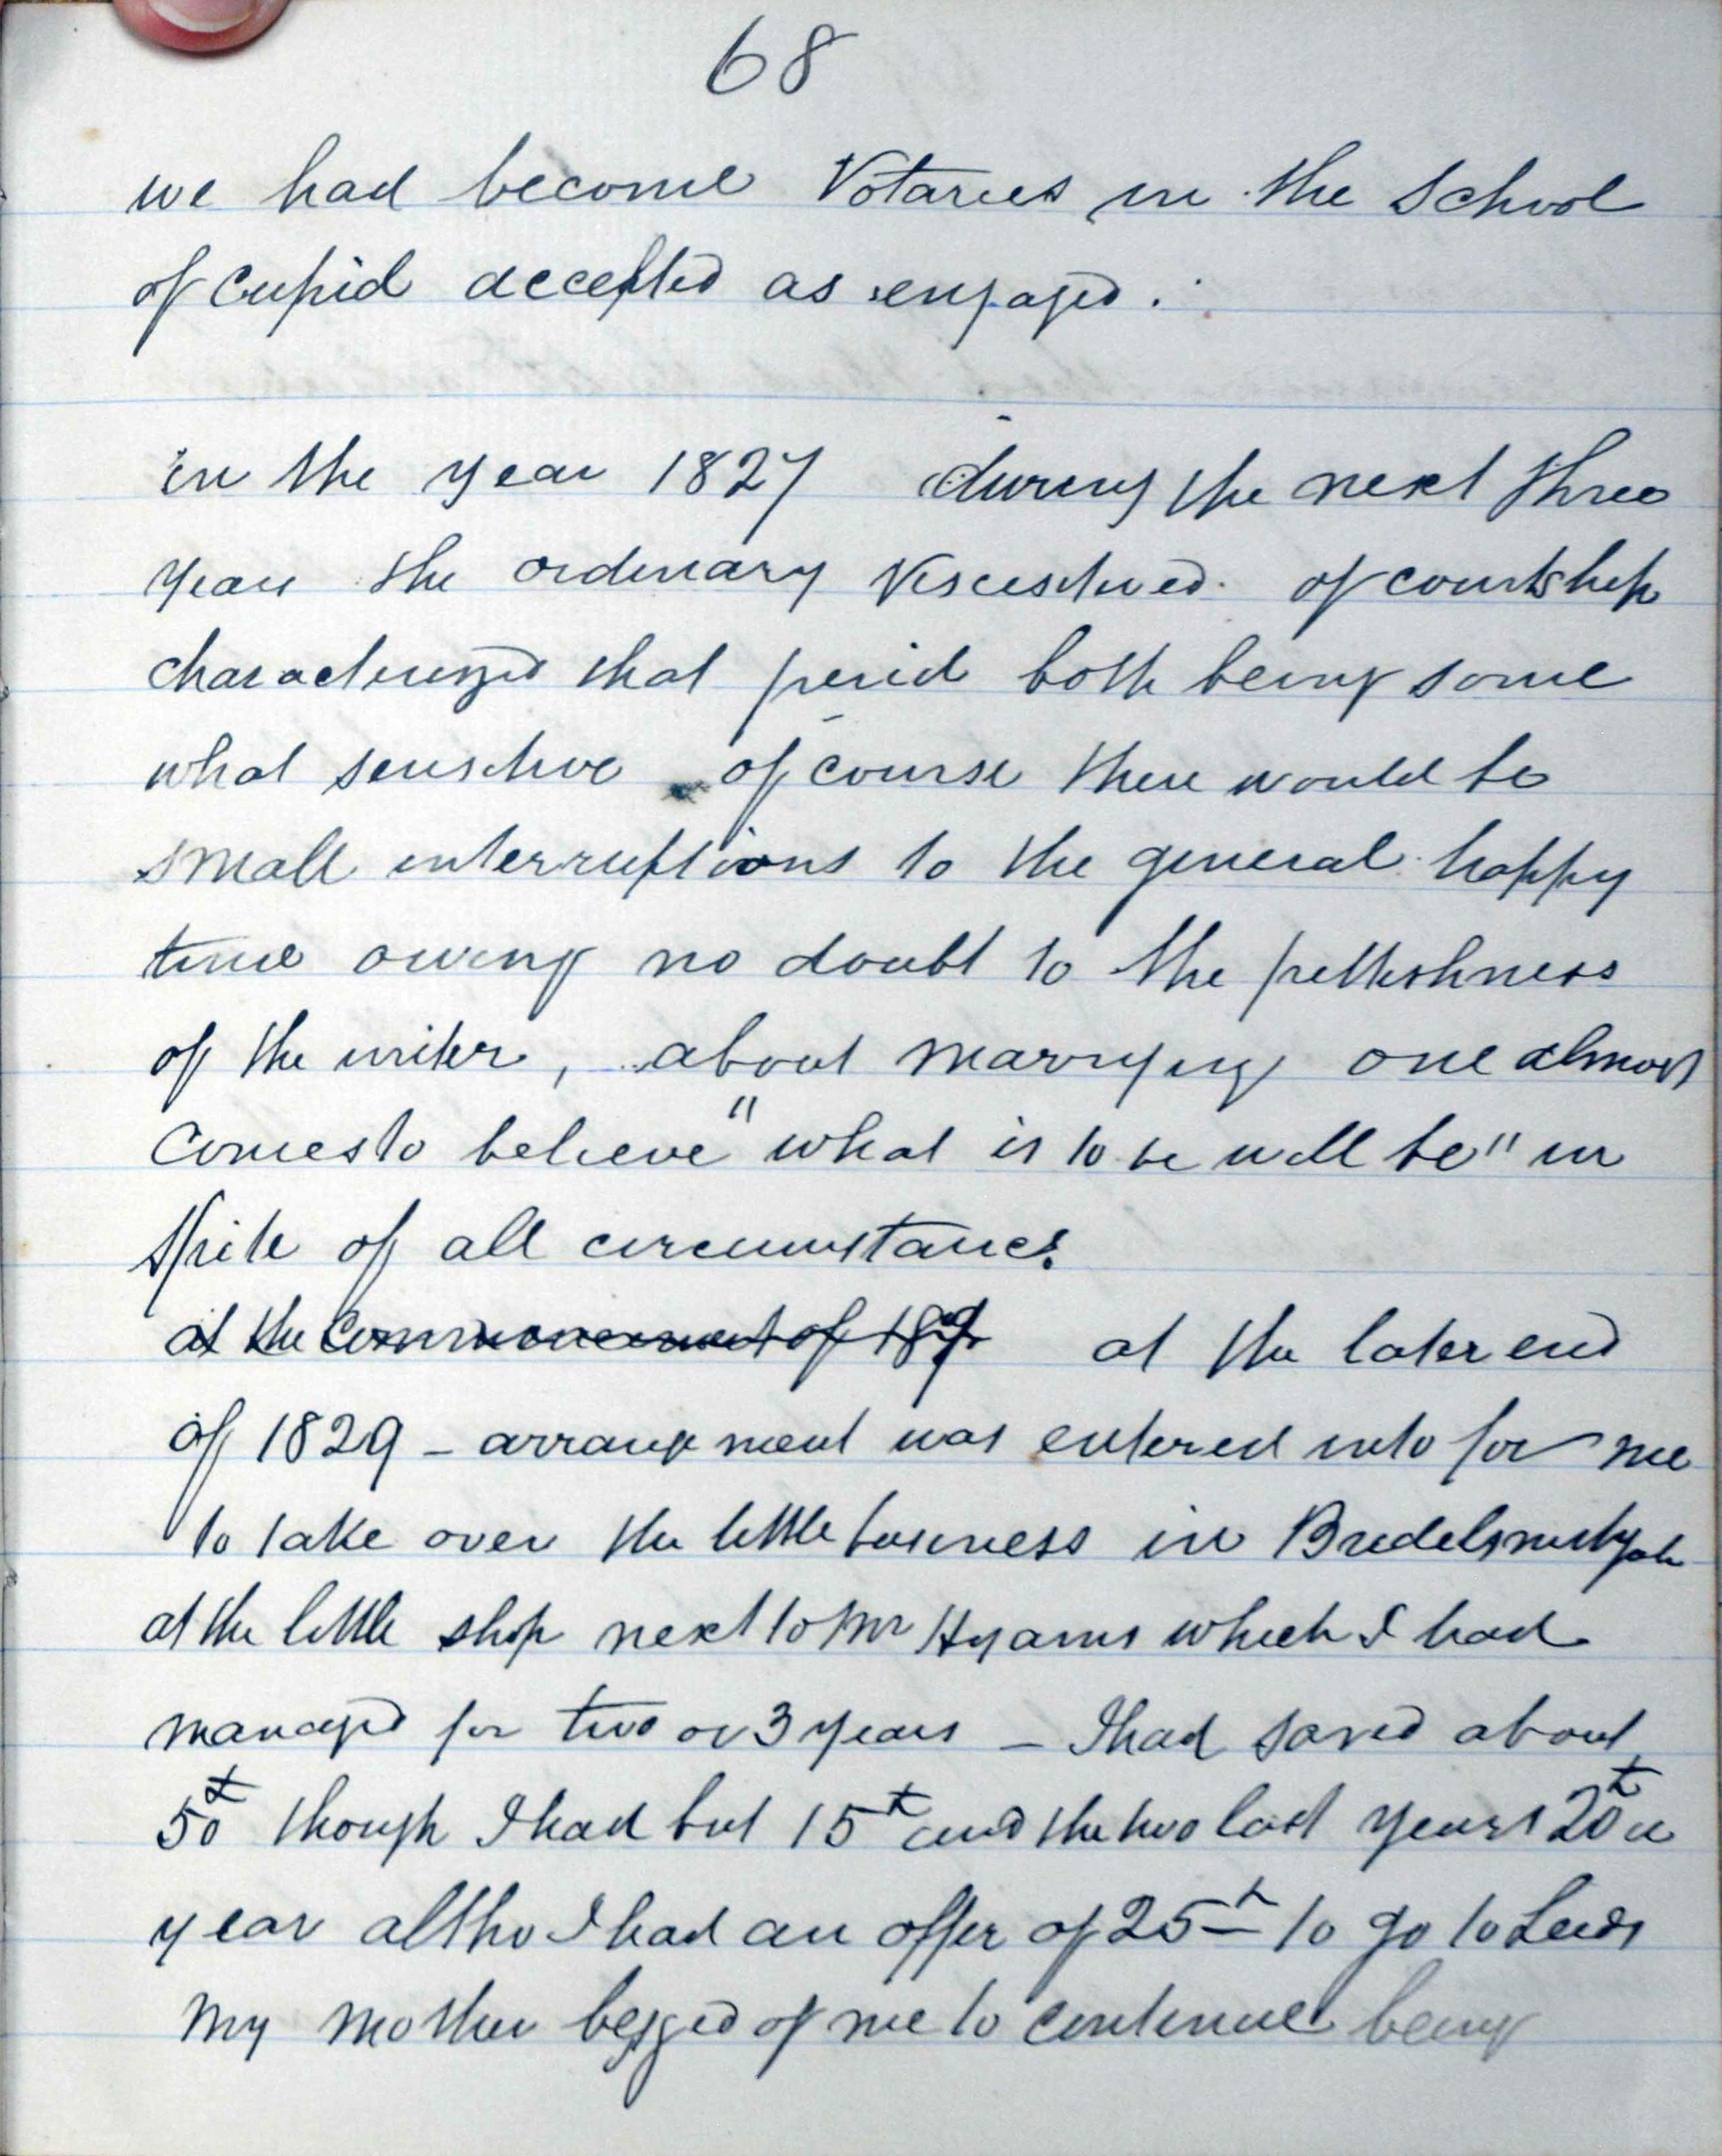 68
we had become Votaries in the School
of Cupid accepted as engaged.
in the year 1827 during the next three
years the ordinary of courtship
characterized that period both being some
what sensitive of course there would be
small interruptions to the general happy
time owing no doubt to the pettishness
of the writer, about marrying one almost
comes to believe "what is to be will be" in
spite of all circumstances.
at the Commencement of at the later end
of 1829 - arrangement was entered into for me
to take over the little business in Bridlesmithgate
at the little shop next to Mr Hyams which I had
managed for two or 3 years - I had saved about
50£ though I had but 15£ and the two last years 20£ a
year altho I had an offer of 25£ to go to Leeds
my mother begged of me to continue being